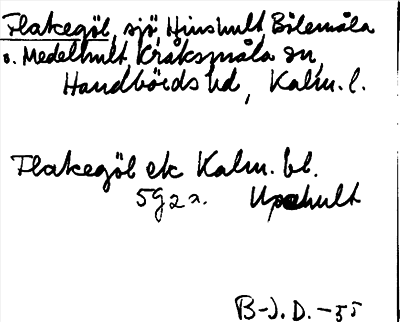 Flakegöl, sjö, Hinshult Bölemåla
o. Medelhult, Kråksmåla sn,
Handbörds hd, Kalm. l.
Flakegöl ek Kalm. bl.
5g2a. Upphult
B-J. D. -55